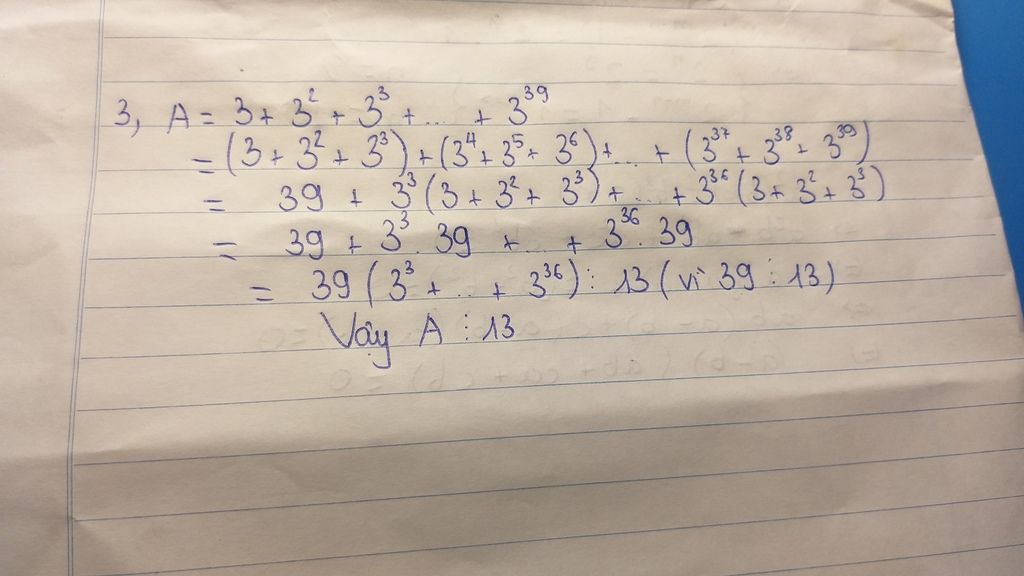 3, A = 3 + 3² + 3³ + ... + 3³⁹
= (3 + 3² + 3³) + (3⁴ + 3⁵ + 3⁶) + ... + (3³⁷ + 3³⁸ + 3³⁹)
= 39 + 3³ (3 + 3² + 3³) + ... + 3³⁶ (3 + 3² + 3³)
= 39 + 3³ . 39 + ... + 3³⁶ . 39
= 39 (3³ + ... + 3³⁶) ⋮ 13 (vì 39 ⋮ 13)
Vậy A ⋮ 13